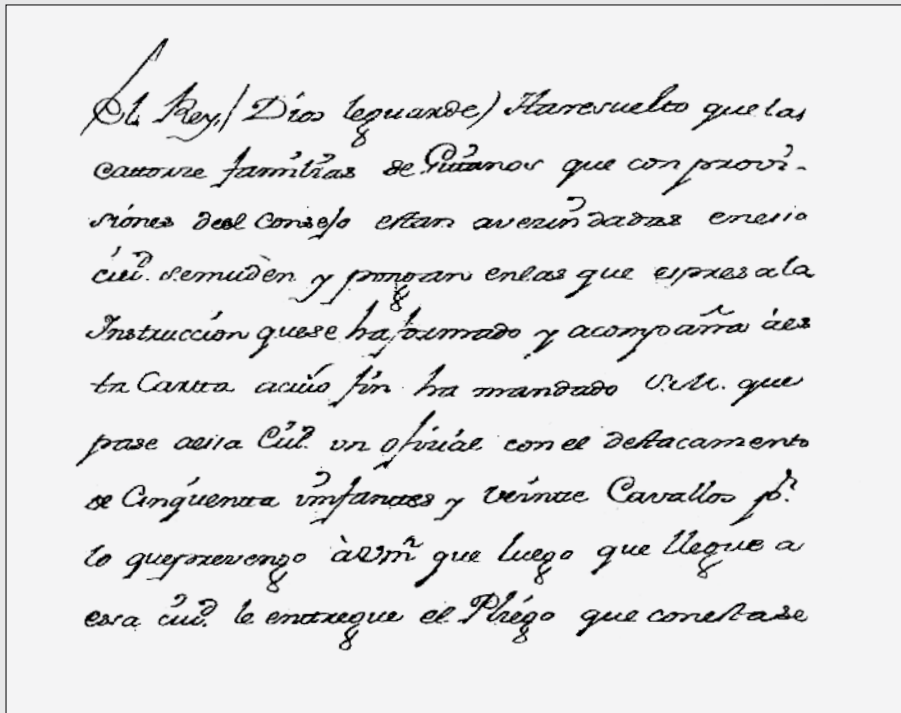 El Rey (Dios leguarde) Haresuelto que las
catorze familias de Gitanos que con provi-
siones deel Consejo estan avezindadas enesa
ciud. semuden y pongan enlas que espresala
Instruccion quese ha formado y acompaña àes
ta Carta acuio fin ha mandado S.M. que
pase aesa Ciud. un ofizial con el destacamento
de Cinquenta ynfantes y veinte Cavallos pr.
lo queprevengo àVm que luego que llegue a
esa ciud. le entregue el Pliego que conestase